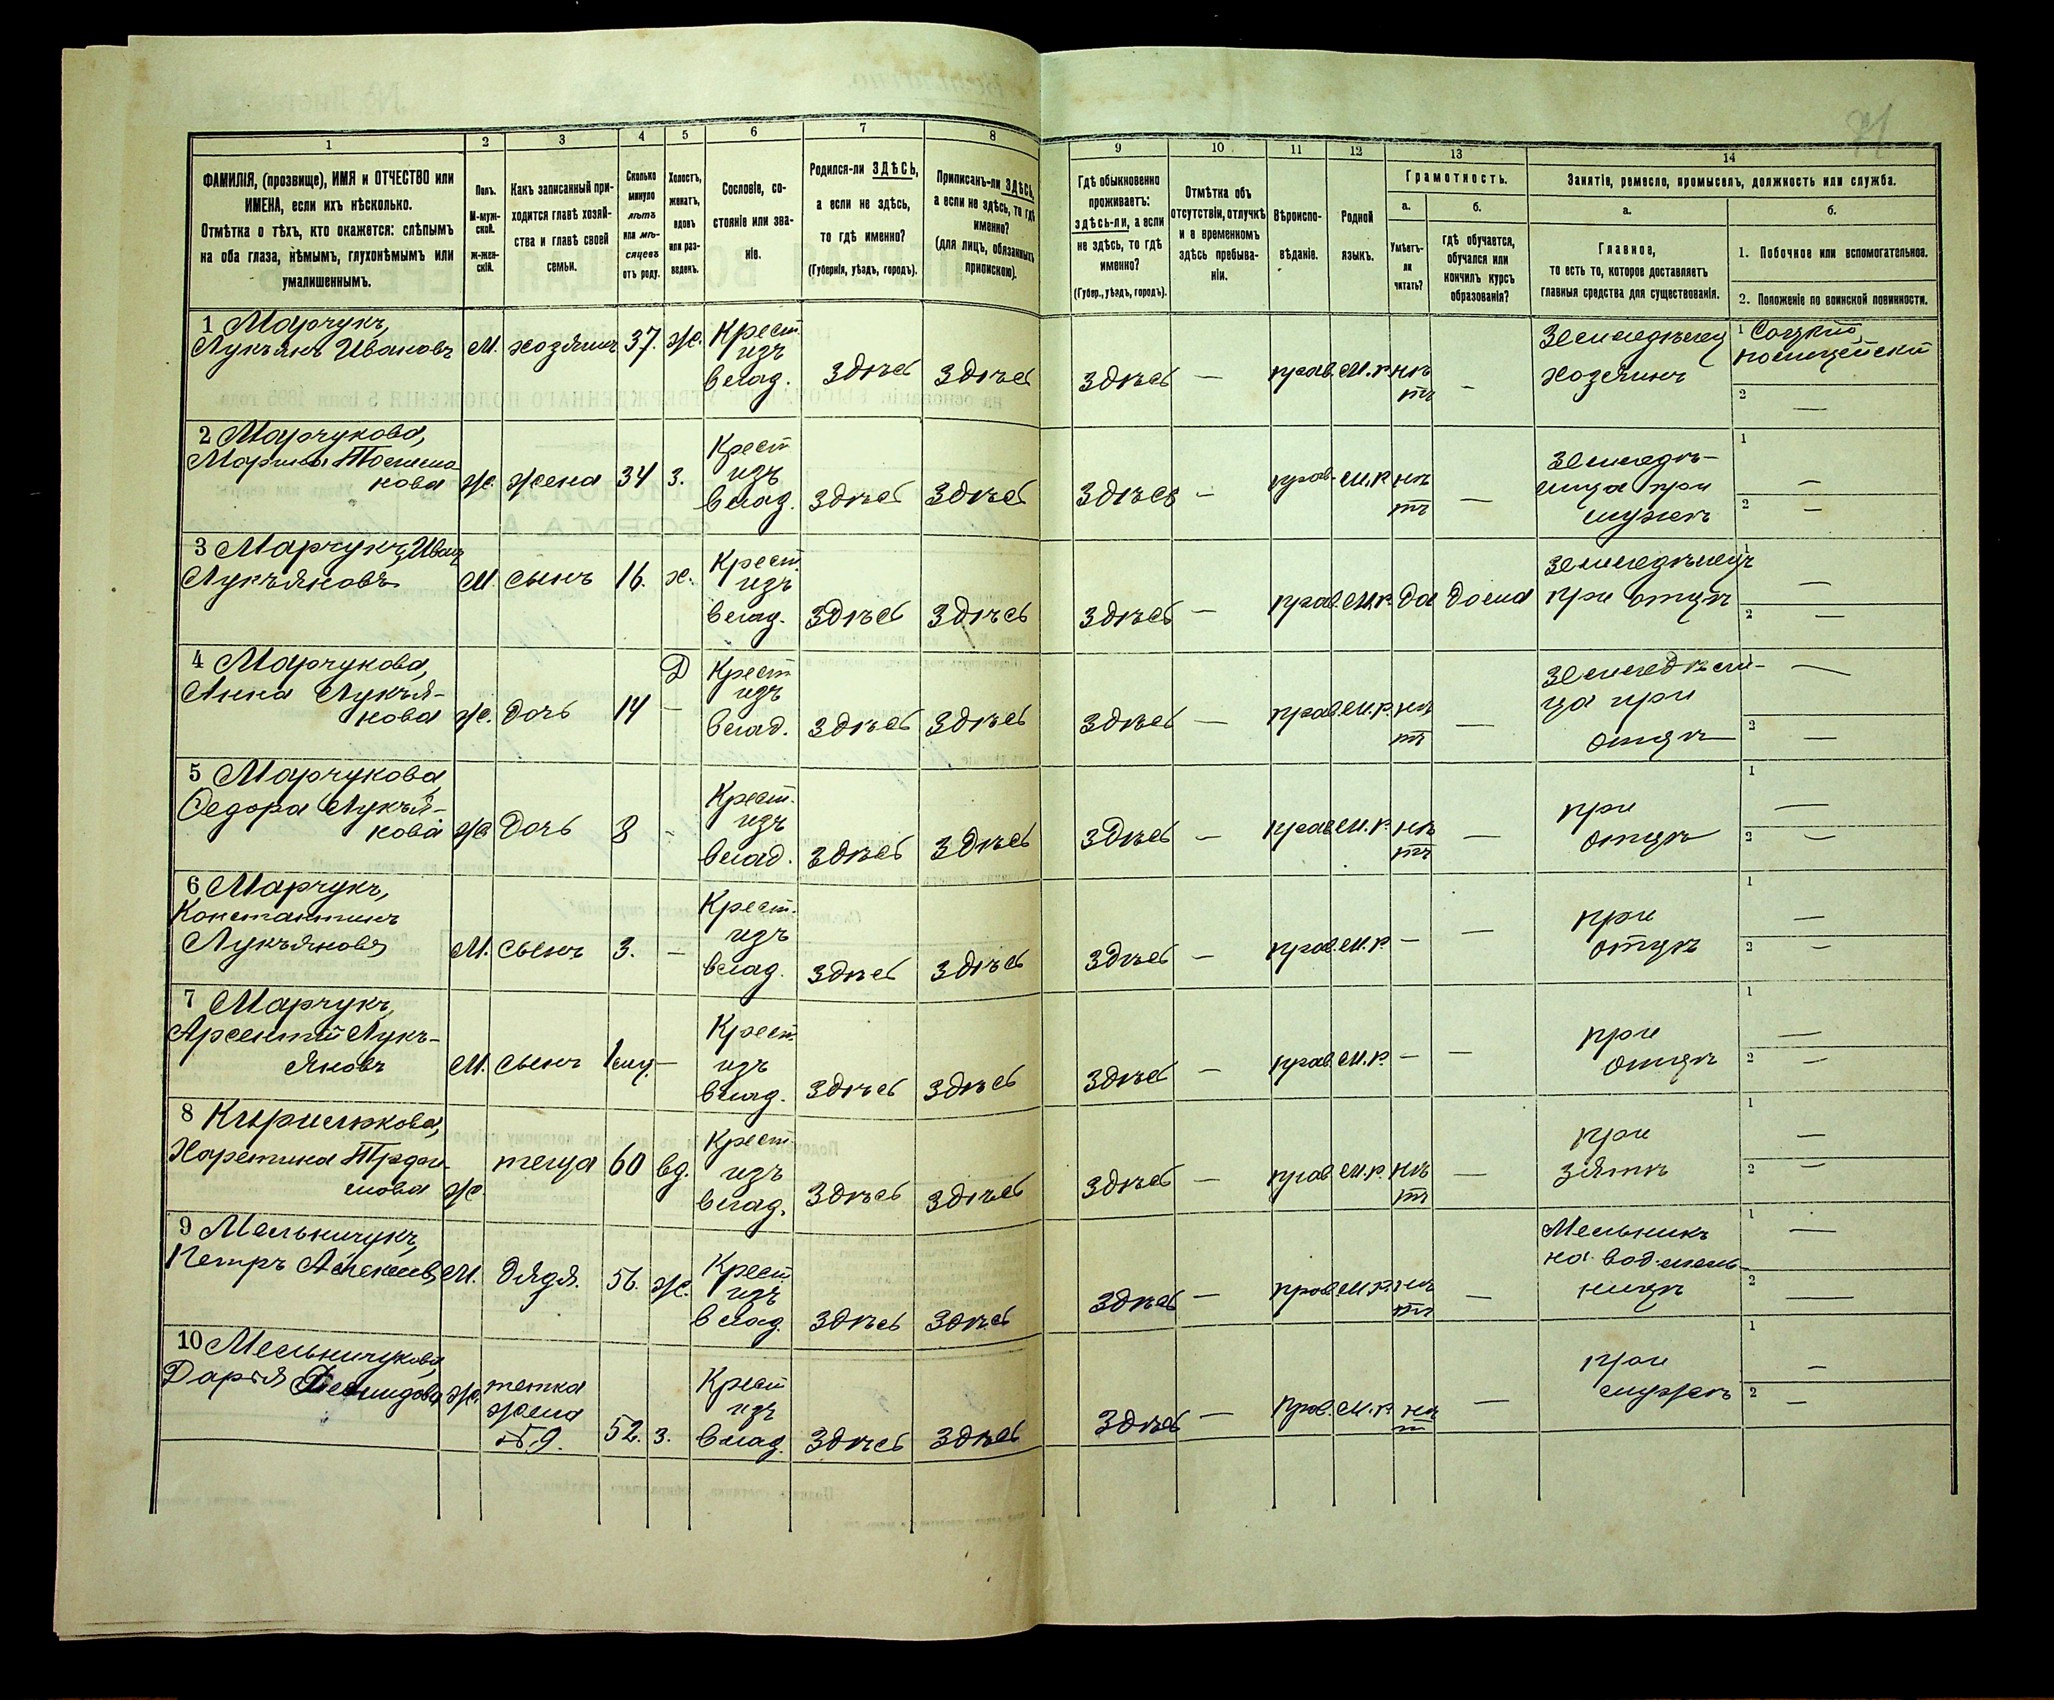 1 2 3 4 5 6 7 8 9 10 11 12 13 14
ФАМИЛІЯ, (прозвище), ИМЯ и ОТЧЕСТВО или
ИМЕНА, если ихъ нѣсколько.
Отмѣтка о тѣхъ, кто окажется: слѣпымъ
на оба глаза, нѣмымъ, глухонѣмымъ или
умалишеннымъ.
Полъ.
М-муж-
ской.
ж-жен-
скій.
Какъ записанный при-
ходится главѣ хозяй-
ства и главѣ своей
семьи.
Сколько
минуло
лѣтъ
или мѣ-
сяцевъ
отъ роду.
Холостъ,
женатъ,
вдовъ
или раз-
веденъ.
Сословіе, со-
стояніе или зва-
ніе.
Родился-ли ЗДѢСЬ,
а если не здѣсь,
то гдѣ именно?
(Губернія, уѣздъ, городъ).
Приписанъ-ли ЗДѢСЬ,
а если не здѣсь, то гдѣ
именно?
(для лицъ, обязанныхъ
припискою).
Гдѣ обыкновенно
проживаетъ:
ЗДѢСЬ-ЛИ, а если
не здѣсь, то гдѣ
именно?
(Губер., уѣздъ, городъ).
Отмѣтка объ
отсутствіи, отлучкѣ
и о временномъ
здѣсь пребыва-
ніи.
Вѣроиспо-
вѣданіе.
Родной
языкъ.
Грамотность.
а.
Умѣетъ-
ли
читать?
б.
гдѣ обучается,
обучался или
кончилъ курсъ
образованія?
Занятіе, ремесло, промыселъ, должность или служба.
а.
Главное,
то есть то, которое доставляетъ
главныя средства для существованія.
б.
1. Побочное или вспомогательное.
2. Положеніе по воинской повинности.
1 Марчукъ,
Лукьянъ Ивановъ
М. хозяинъ 37. ж.
Крест.
изъ
влад.
Здѣсь Здѣсь Здѣсь — прав. м.р. нѣ
тъ —
Земледѣлец
хозяинъ
1 Соцкій
полицейскій
2 —
2 Марчукова,
ж. жена 34 з.
Крест
изъ
влад.
Здѣсь Здѣсь Здѣсь — прав. м.р. нѣ
тъ —
Земледѣ-
лица при
мужѣ
1 —
2 —
3 Марчукъ, Иван
Лукьяновъ
М. сынъ 16. х.
Крест.
изъ
влад.
Здѣсь Здѣсь Здѣсь — прав. м.р. да дома
земледѣлецъ
при отцѣ
1 —
2 —
4 Марчукова,
Анна Лукья-
нова
ж. дочь 14 Д
—
Крест
изъ
влад.
Здѣсь Здѣсь Здѣсь — прав. м.р. нѣ
тъ —
Земледѣли-
ца при
отцѣ
1 —
2 —
5 Марчукова,
Федора Лукья-
нова
ж. дочь 8 -
Крест.
изъ
влад.
Здѣсь Здѣсь Здѣсь — прав. м.р. нѣ
тъ —
при
отцѣ
1 —
2 —
6 Марчукъ,
Константинъ
Лукьяновъ
М. сынъ 3. —
Крест.
изъ
влад.
Здѣсь Здѣсь Здѣсь — прав. м.р. — —
при
отцѣ
1 —
2 —
7 Марчукъ,
Арсентій Лукь-
яновъ
М. сынъ 1 —
Крест.
изъ
влад.
Здѣсь Здѣсь Здѣсь — прав. м.р. — —
при
отцѣ
1 —
2 —
8 Кирилюкова,
Харетина
ж. теща 60 вд.
Крест
изъ
влад.
Здѣсь Здѣсь Здѣсь — прав. м.р. нѣ
тъ —
при
зятѣ
1 —
2 —
9 Мельничукъ,
Петръ Алексеевъ
М. дядя. 56. ж.
Крест
изъ
влад.
Здѣсь Здѣсь Здѣсь — прав. м.р. нѣ
тъ —
Мельникъ
на вод. мель-
ницѣ
1 —
2 —
10 Мельничукова,
Дарья
ж. тетка
жена
№9. 52. з.
Крест
изъ
влад.
Здѣсь Здѣсь Здѣсь — прав. м.р. нѣ
т —
при
мужѣ
1 —
2 —